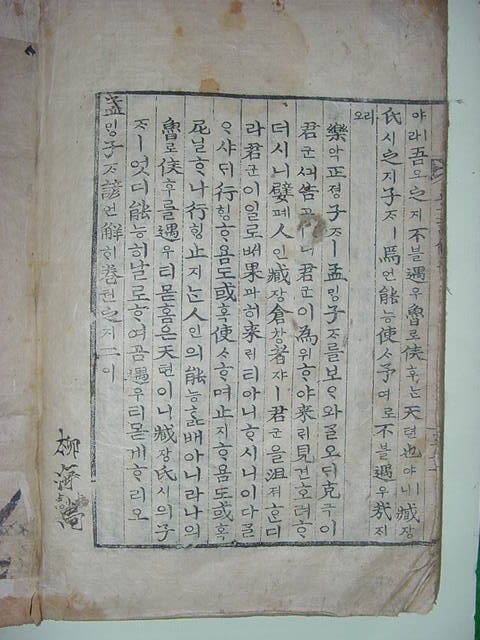 야라吾오之지不블遇우魯로侯후ᄂᆞᆫ天텬也야ㅣ니臧장
氏시之지子ᄌᆞㅣ焉언能능使ᄉᆞ予여로不블遇우哉ᄌᆡ리오
樂악正졍子ᄌᆞㅣ孟ᄆᆡᆼ子ᄌᆞ를보ᄋᆞ와ᄀᆞᆯ오ᄃᆡ克극이
君군ᄭᅴ告고ᄒᆞ니君군이為위ᄒᆞ야来ᄅᆡ見견호려ᄒᆞ
더시니嬖폐人인臧장倉창者쟈ㅣ君군을沮져ᄒᆞᆫ디
라君군이일로ᄡᅥ果과히来ᄅᆡ티아니ᄒᆞ시니이다ᄀᆞᆯ
ᄋᆞ샤ᄃᆡ行ᄒᆡᆼᄒᆞ욤도或혹使ᄉᆞᄒᆞ며止지ᄒᆞ욤도或혹
尼닐ᄒᆞ나行ᄒᆡᆼ止지ᄂᆞᆫ人인의能능ᄒᆞᆯ배아니라나의
魯로侯후를遇우티몯홈은天텬이니臧장氏시의子
ᄌᆞㅣ엇디能능히날로ᄒᆞ여곰遇우티몯게ᄒᆞ리오
孟ᄆᆡᆼ子ᄌᆞ諺언解ᄒᆡ卷권之지二이
柳海